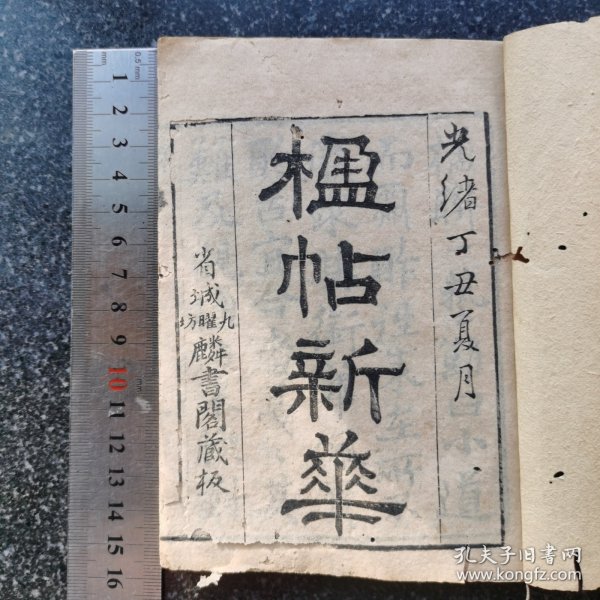 光緒丁丑夏月
楹帖新華
省城九曜坊麟書閣藏板
0.5 mm
1
2
3
4
5
6
7
8
9
10
11
12
13
14
15
16
孔夫子旧书网
www.kongfz.com